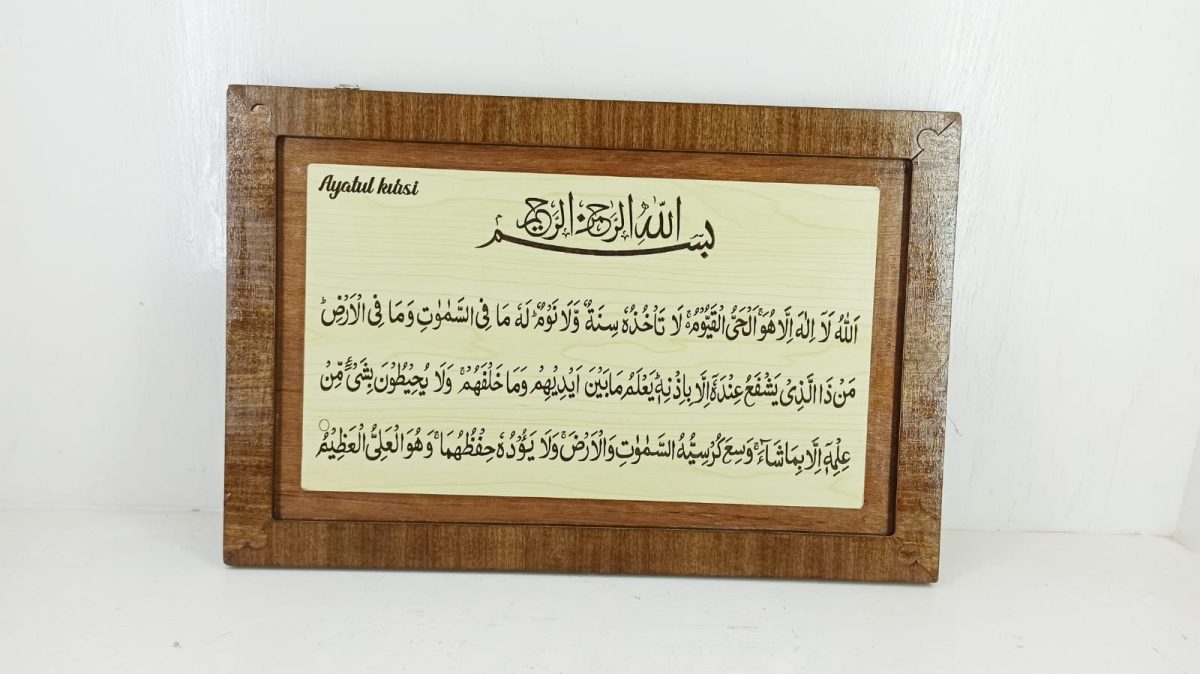 Ayatul kursi
بسم الله الرحمن الرحيم
اَللّٰهُ لَآ اِلٰهَ اِلَّا هُوَ ۚ اَلْحَيُّ الْقَيُّوْمُ ۚ لَا تَاْخُذُهٗ سِنَةٌ وَّلَا نَوْمٌ ؕ لَهٗ مَا فِى السَّمٰوٰتِ وَمَا فِى الْاَرْضِ ؕ
مَنْ ذَا الَّذِىْ يَشْفَعُ عِنْدَهٗٓ اِلَّا بِاِذْنِهٖ ؕ يَعْلَمُ مَا بَيْنَ اَيْدِيْهِمْ وَمَا خَلْفَهُمْ ۚ وَلَا يُحِيْطُوْنَ بِشَىْءٍ مِّنْ
عِلْمِهٖٓ اِلَّا بِمَا شَآءَ ۚ وَسِعَ كُرْسِيُّهُ السَّمٰوٰتِ وَالْاَرْضَ ۚ وَلَا يَـُٔوْدُهٗ حِفْظُهُمَا ۚ وَهُوَ الْعَلِىُّ الْعَظِيْمُ